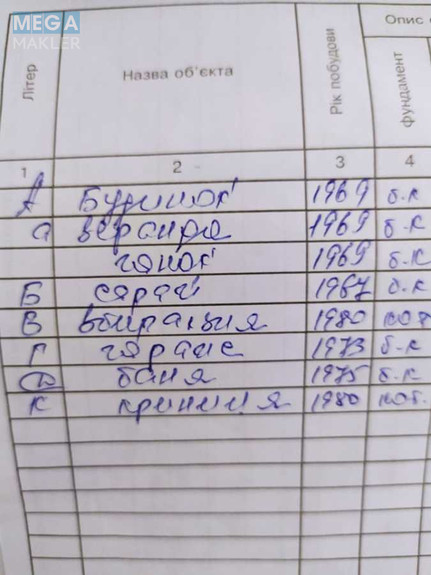 MEGA
MAKLER
Літер
Назва об'єкта
Рік побудови
Опис
фундамент
1 2 3 4
А Будинок 1969 б.к
а веранда 1969 б.к
ганок 1969 б.к
Б сарай 1967 б.к
В вбиральня 1980 кот
Г гараж 1973 б.к
Д баня 1975 б.к
К криниця 1980 кот.